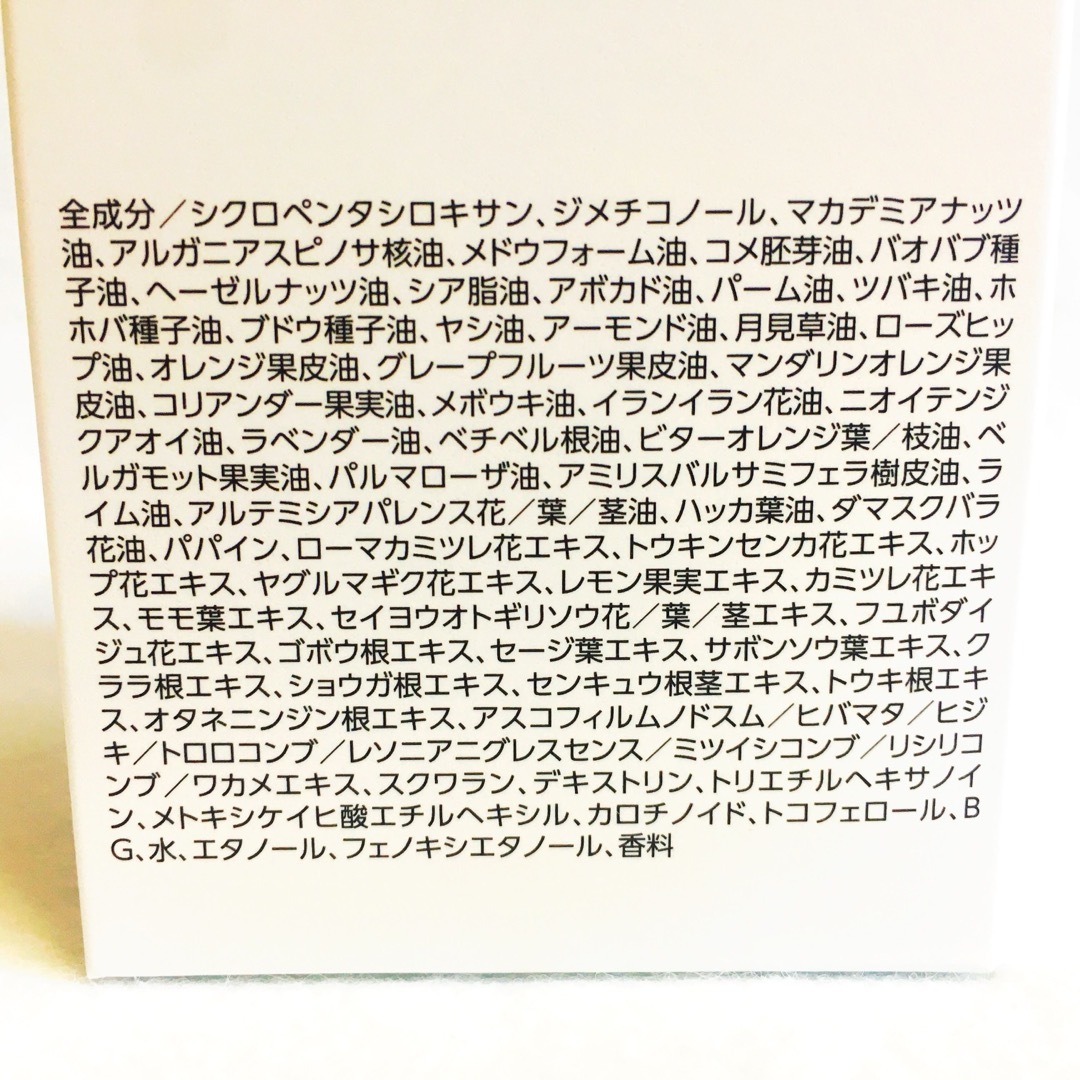 全成分／シクロペンタシロキサン、ジメチコノール、マカデミアナッツ
油、アルガニアスピノサ核油、メドウフォーム油、コメ胚芽油、バオバブ種
子油、ヘーゼルナッツ油、シア脂油、アボカド油、パーム油、ツバキ油、ホ
ホバ種子油、ブドウ種子油、ヤシ油、アーモンド油、月見草油、ローズヒッ
プ油、オレンジ果皮油、グレープフルーツ果皮油、マンダリンオレンジ果
皮油、コリアンダー果実油、メボウキ油、イランイラン花油、ニオイテンジ
クアオイ油、ラベンダー油、ベチベル根油、ビターオレンジ葉／枝油、ベ
ルガモット果実油、パルマローザ油、アミリスバルサミフェラ樹皮油、ラ
イム油、アルテミシアパレンス花／葉／茎油、ハッカ葉油、ダマスクバラ
花油、パパイン、ローマカミツレ花エキス、トウキンセンカ花エキス、ホッ
プ花エキス、ヤグルマギク花エキス、レモン果実エキス、カミツレ花エキ
ス、モモ葉エキス、セイヨウオトギリソウ花／葉／茎エキス、フユボダイ
ジュ花エキス、ゴボウ根エキス、セージ葉エキス、サボンソウ葉エキス、ク
ララ根エキス、ショウガ根エキス、センキュウ根茎エキス、トウキ根エキ
ス、オタネニンジン根エキス、アスコフィルムノドスム／ヒバマタ／ヒジ
キ／トロロコンブ／レソニアニグレスセンス／ミツイシコンブ／リシリコ
ンブ／ワカメエキス、スクワラン、デキストリン、トリエチルヘキサノイ
ン、メトキシケイヒ酸エチルヘキシル、カロチノイド、トコフェロール、B
G、水、エタノール、フェノキシエタノール、香料